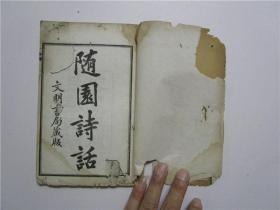 随園詩話
文明書局藏版